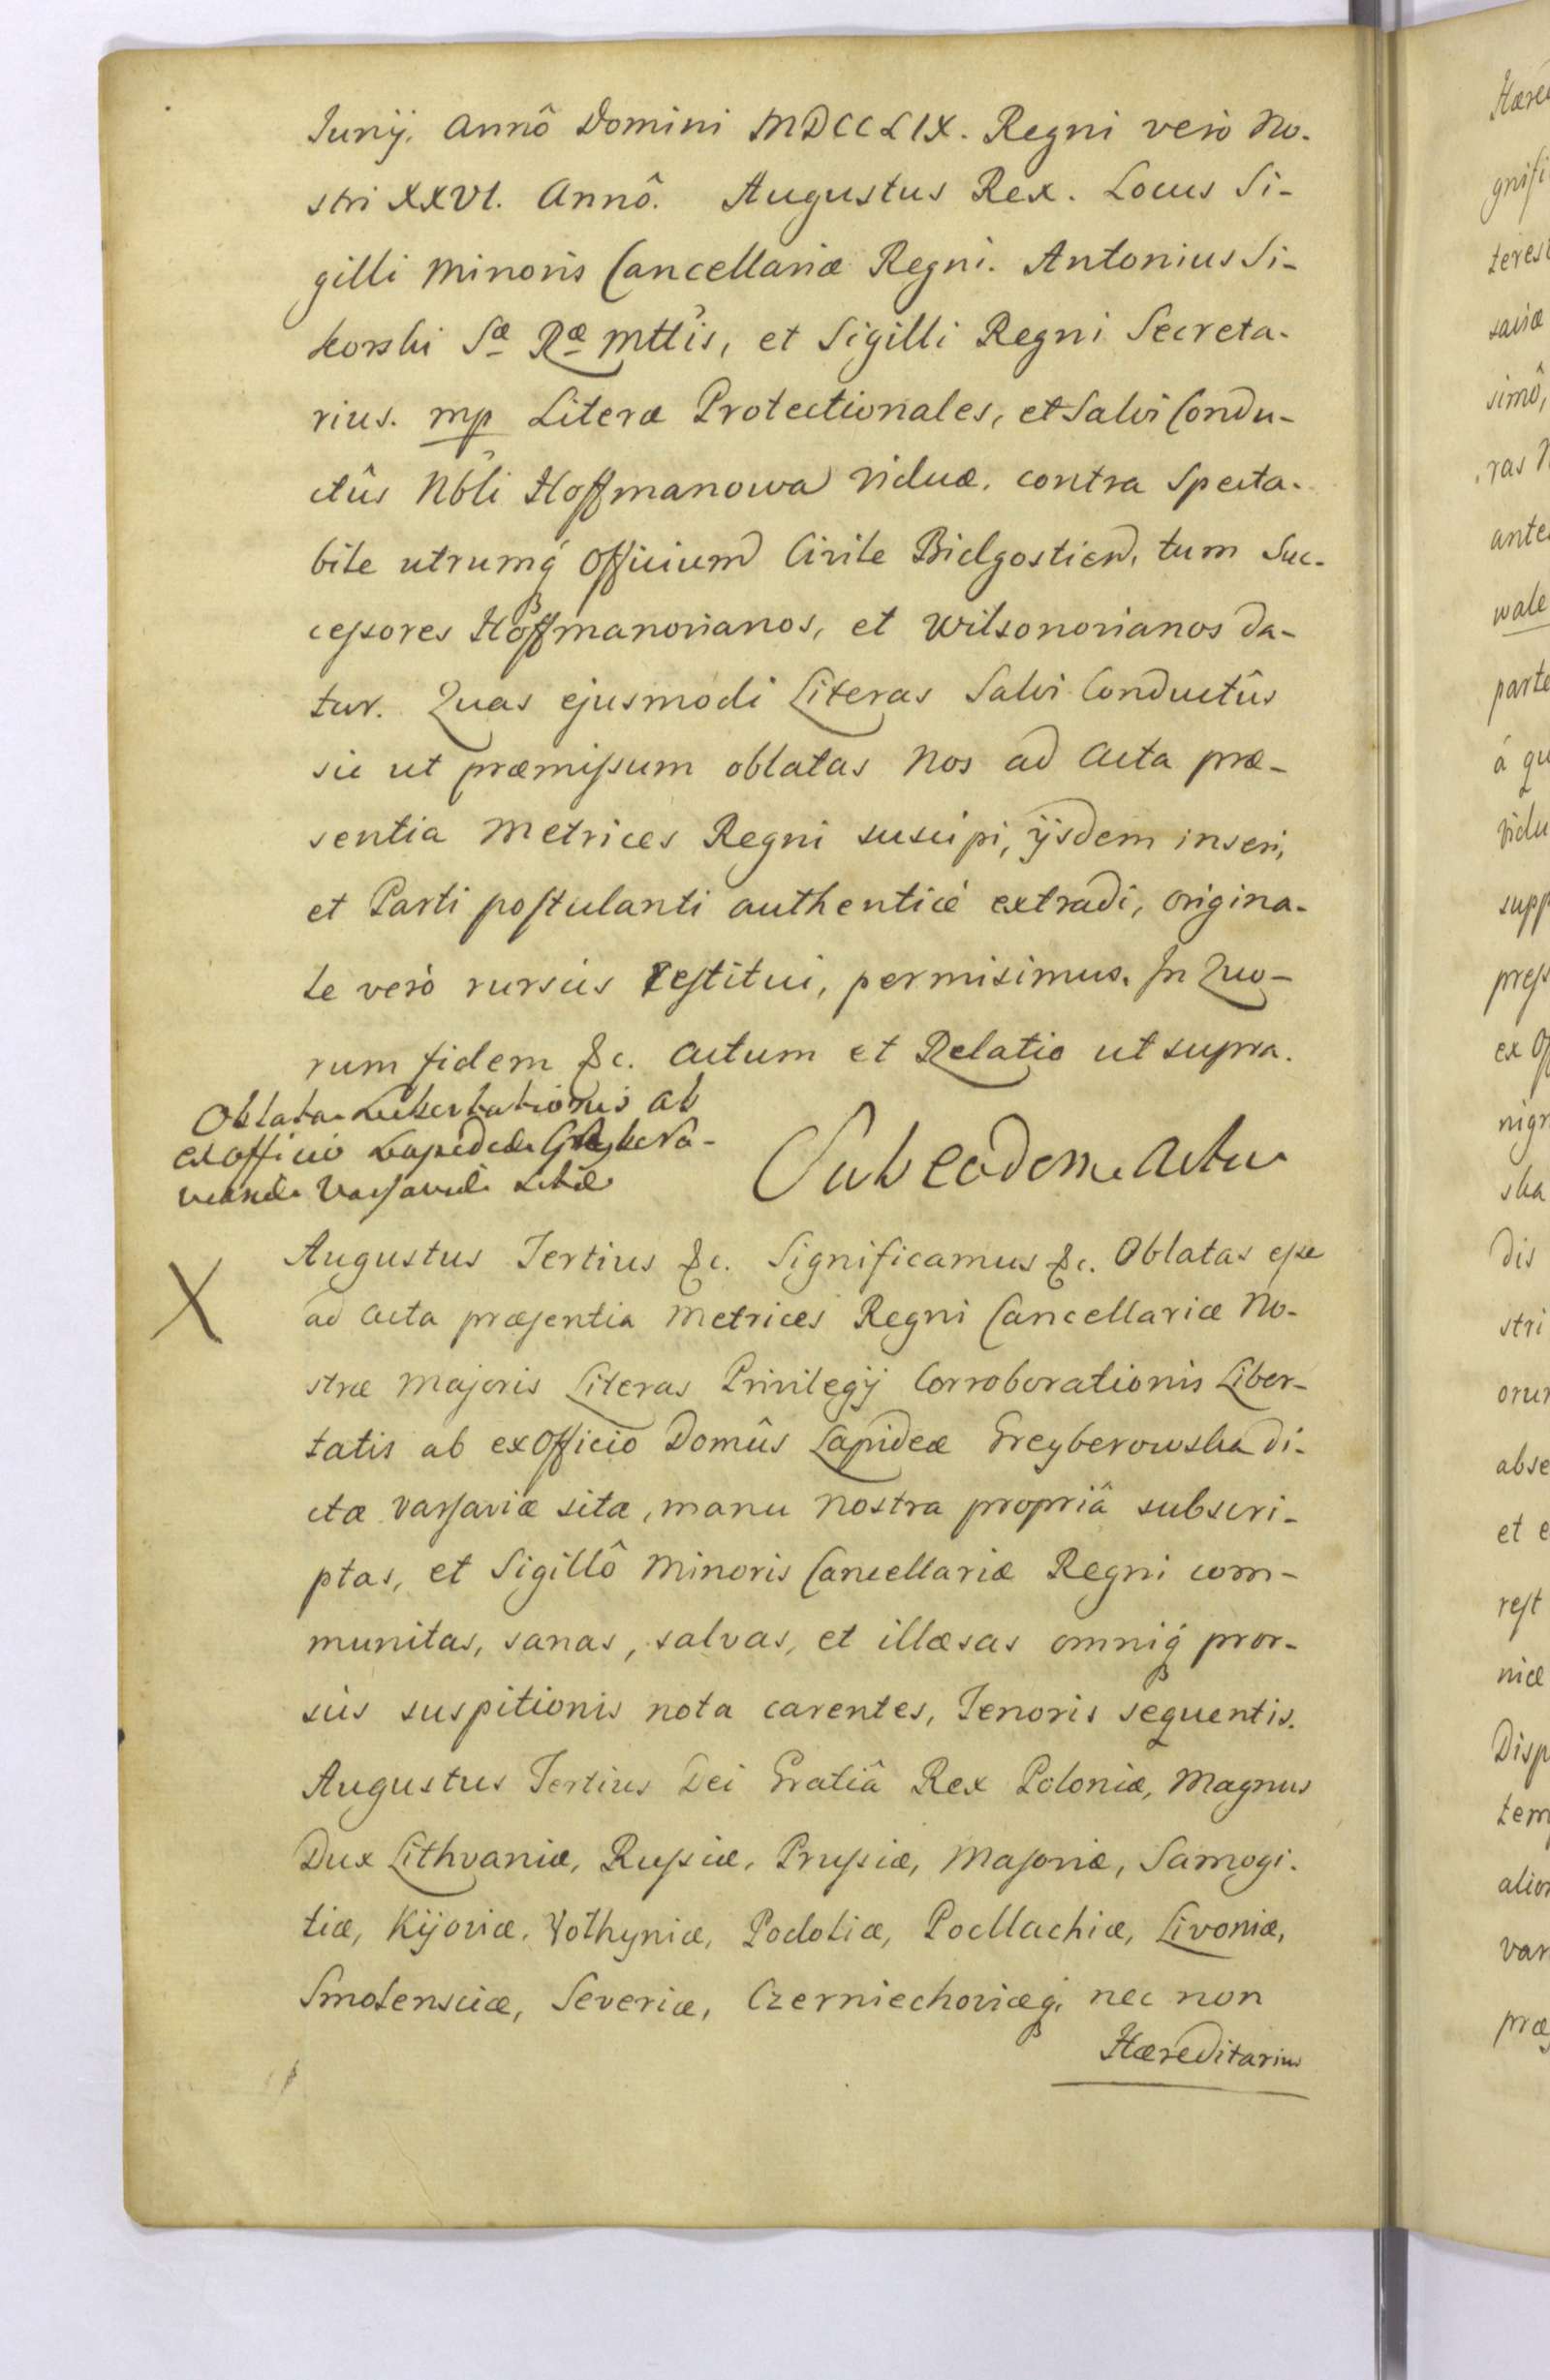 Junij. Annô Domini MDCCLIX. Regni verò No-
stri XXVI. Annô. Augustus Rex. Locus Si-
gilli Minoris Cancellariæ Regni. Antonius Si-
korski Sæ Ræ Mttis, et Sigilli Regni Secreta-
rius. mp Literæ Protectionales, et Salvi Condu-
ctûs Nbli Hoffmanowa Viduæ. contra Specta-
bile utrumq́ Officium Civile Bidgostien. tum Suc-
cessores Hoffmanovianos, et Wilsonovianos da-
tur. Quas ejusmodi Literas Salvi Conductûs
sic ut præmissum oblatas Nos ad Acta præ-
sentia Metrices Regni suscipi, ijsdem inseri,
et Parti postulanti authenticè extradi, origina-
le verò rursùs restitui, permisimus. In Quo-
rum fidem &c. Actum et Relatio ut supra.
Oblata Libertationis ab
exofficio Lapideæ Greybero-
Varsaviæ sitæ
Sub eodem Actu
X
Augustus Tertius &c. Significamus &c. Oblatas esse
ad Acta præsentia Metrices Regni Cancellariæ No-
stræ Majoris Literas Privilegij Corroborationis Liber-
tatis ab exOfficio Domûs Lapideæ Greyberowska di-
ctæ Varsaviæ sitæ, manu Nostra propriâ subscri-
ptas, et Sigillô Minoris Cancellariæ Regni com-
munitas, sanas, salvas, et illæsas omniq́ pror-
sùs suspitionis nota carentes, Tenoris sequentis.
Augustus Tertius Dei Gratiâ Rex Poloniæ, Magnus
Dux Lithvaniæ, Russiæ, Prussiæ, Masoviæ, Samogi-
tiæ, Kijoviæ, Volhyniæ, Podoliæ, Podlachiæ, Livoniæ,
Smolensciæ, Severiæ, Czerniechoviæq́, nec non
Hæreditarius